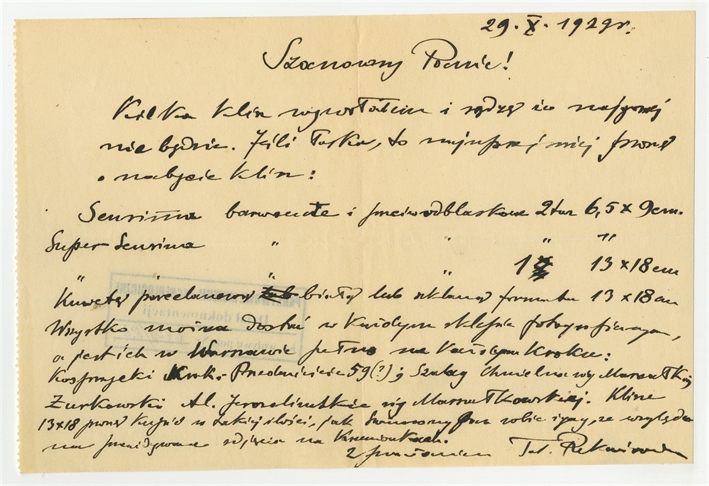 29. X. 1929 r.
Szanowny Panie!
Kilka klisz wywołałem i sądzę że najgorzej
nie będzie. Jeśli łaska, to najuprzejmiej proszę
o nabycie klisz:
Sensima barwoczułe i przeciwodblaskowe 2 tuz 6,5 x 9 cm.
Super-Sensima " " " "
" " 1 13 x 18 cm
Kuwetę porcelanową białą lub szklaną formatu 13 x 18 cm
Wszystko można dostać w każdym sklepie fotograficznym,
a jest ich w Warszawie pełno na każdym kroku:
Krak. Przedmieście 59 (?); Szalay Chmielna róg Marszałkowskiej
Żurkowski Al. Jerozolimskie róg Marszałkowskiej. Klisze
13x18 proszę kupić w takiej ilości, jak Szanowny Pan ze względu
na zdjęcia na Krzemionkach.
Z poważaniem